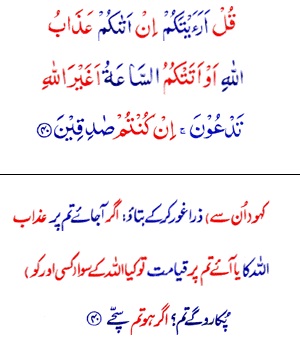 قُلْ اَرَءَيْتَكُمْ اِنْ اَتٰىكُمْ عَذَابُ
اللّٰهِ اَوْ اَتَتْكُمُ السَّاعَةُ اَغَيْرَ اللّٰهِ
تَدْعُوْنَ ۚ اِنْ كُنْتُمْ صٰدِقِيْنَ ﴿۴۰﴾
کہو (اُن سے) ذرا غور کرکے بتاؤ: اگر آجائے تم پر عذاب
اللہ کا یا آئے تم پر قیامت تو کیا اللہ کے سوا (کسی اور کو)
پُکارو گے تم؟ اگر ہو تم سچّے ﴿۴۰﴾